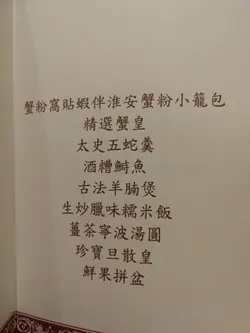 蟹粉窩貼蝦伴淮安蟹粉小籠包
精選蟹皇
太史五蛇羹
酒糟鰣魚
古法羊腩煲
生炒臘味糯米飯
薑茶寧波湯圓
珍寶旦散皇
鮮果拼盆